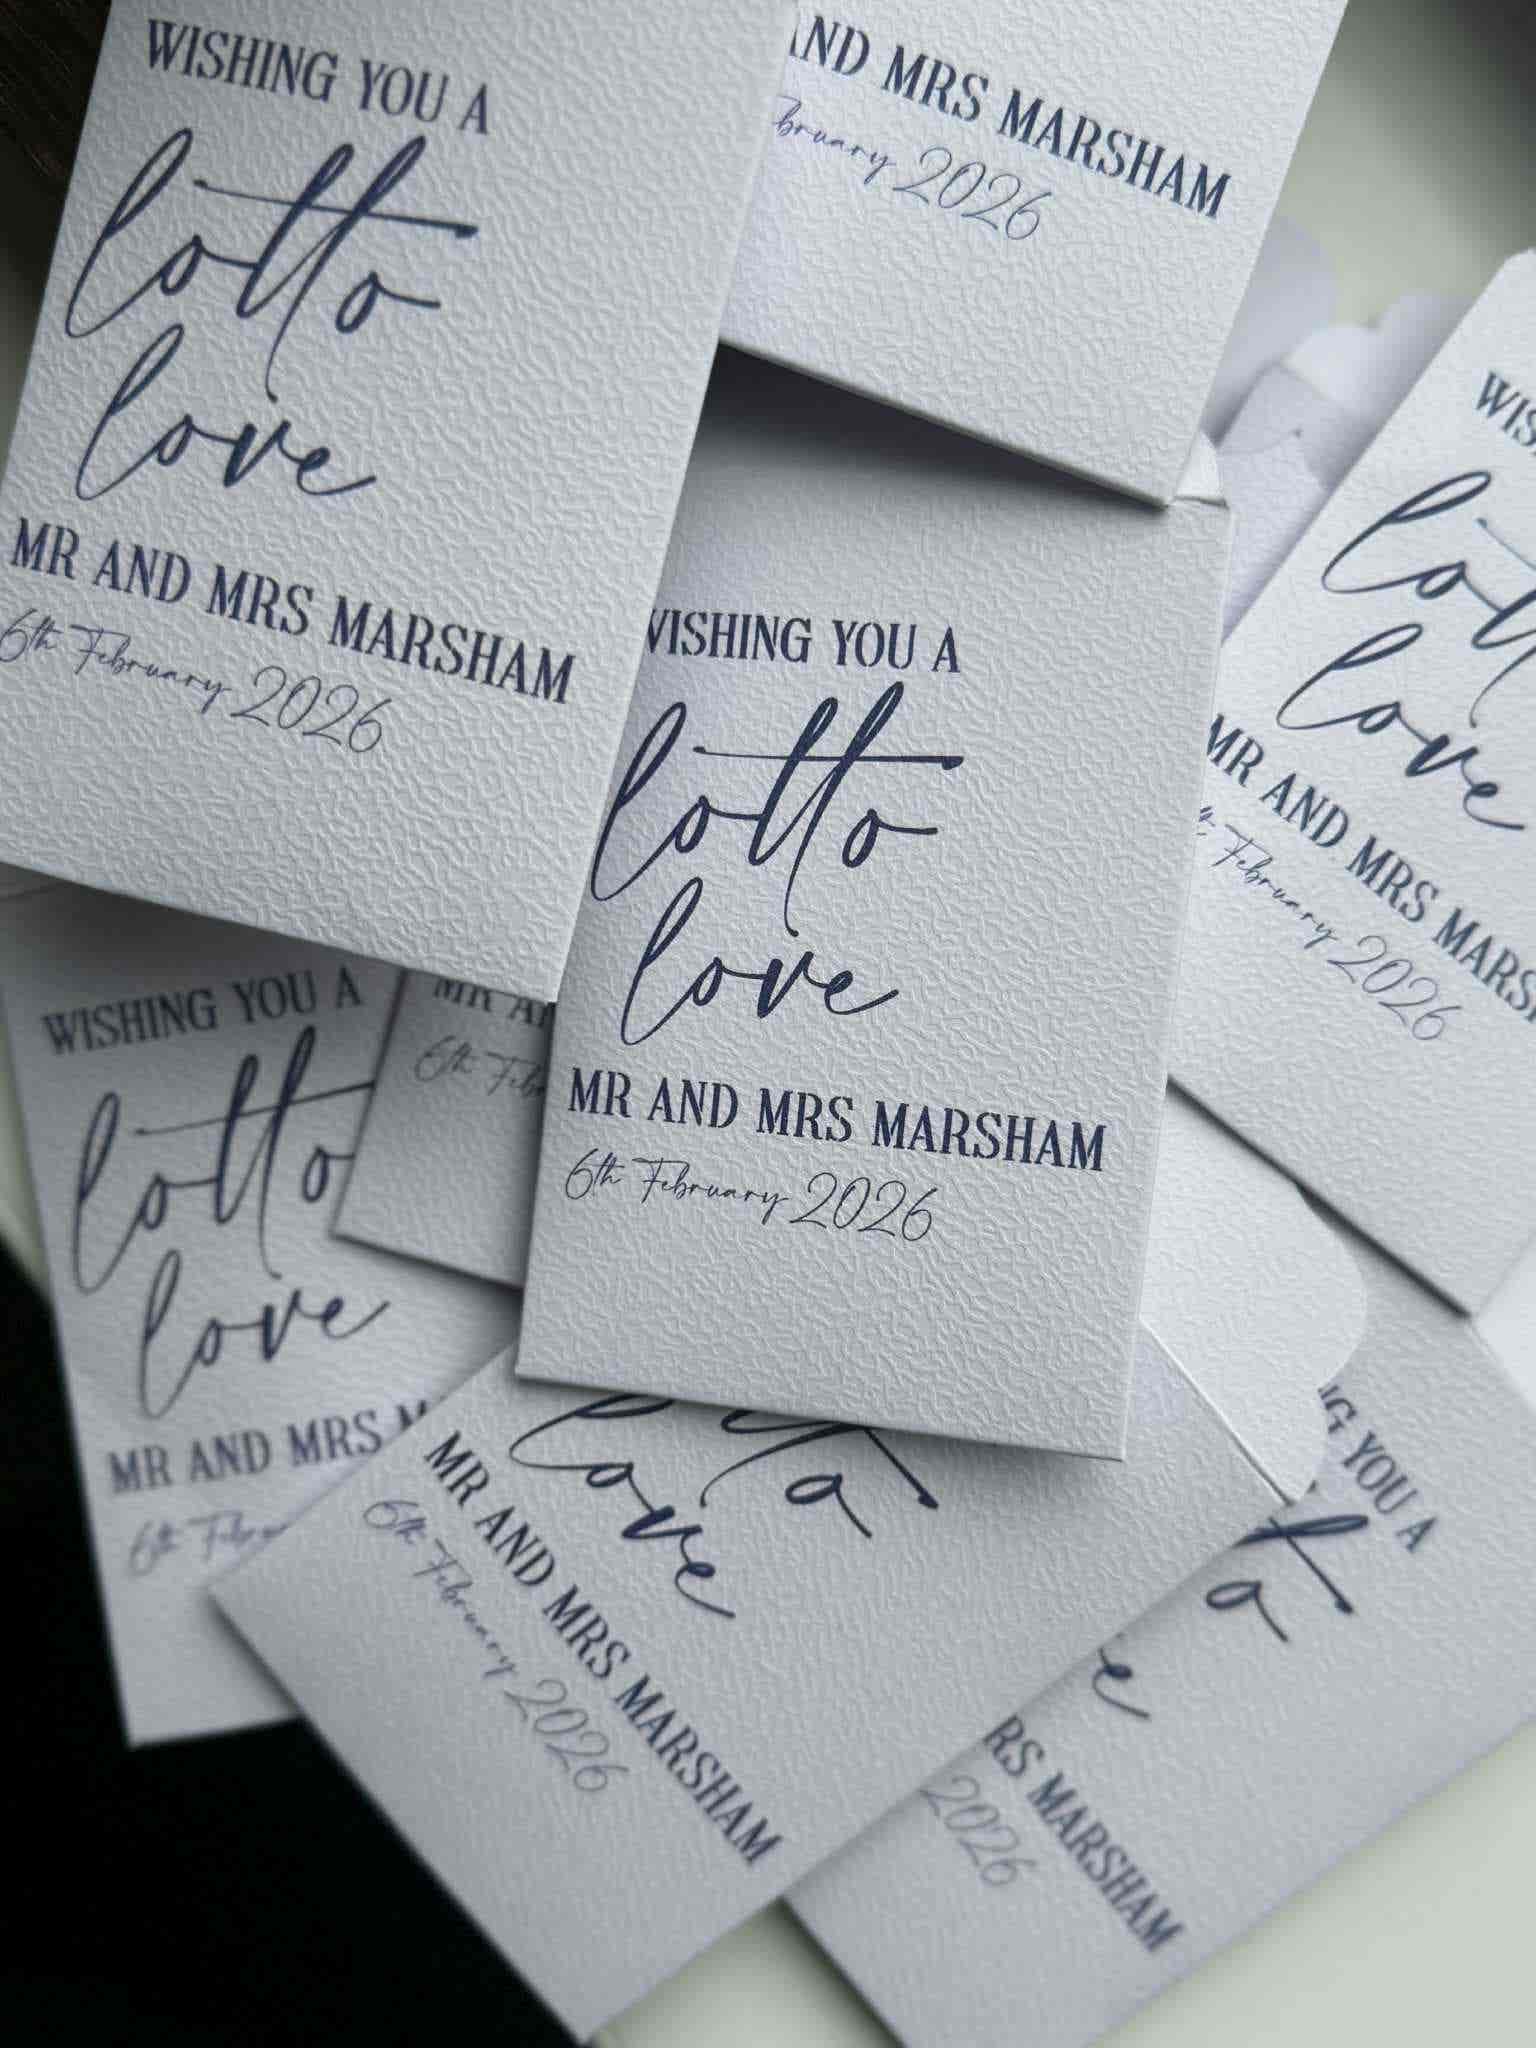 WISHING YOU A
lotto
love
MR AND MRS MARSHAM
6th February 2026
AND MRS MARSHAM
February 2026
WISHING YOU A
lotto
love
MR AND MRS MARSHAM
6th February 2026
lotto
love
MR AND MRS MARSHAM
February 2026
WISHING YOU A
lotto
love
MR AND MRS
6th
MR
6th
love
MR AND MRS MARSHAM
6th February 2026
YOU A
MRS MARSHAM
2026